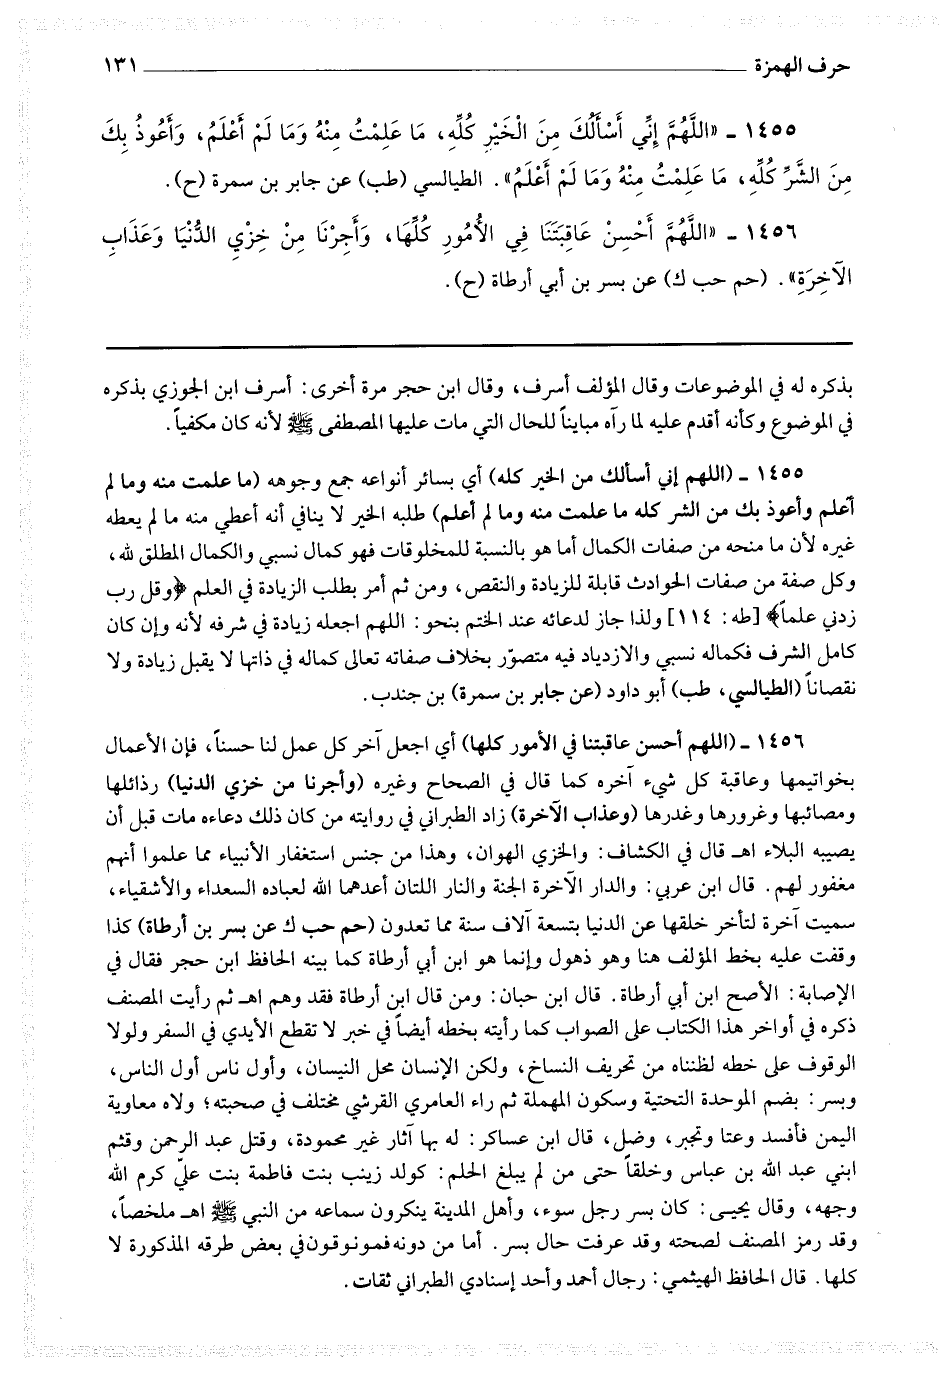 حرف الهمزة ١٣١
١٤٥٥ - «اللَّهُمَّ إِنِّي أَسْأَلُكَ مِنَ الْخَيْرِ كُلِّهِ، مَا عَلِمْتُ مِنْهُ وَمَا لَمْ أَعْلَمُ، وَأَعُوذُ بِكَ
مِنَ الشَّرِّ كُلِّهِ، مَا عَلِمْتُ مِنْهُ وَمَا لَمْ أَعْلَمُ». الطيالسي (طب) عن جابر بن سمرة (ح).
١٤٥٦ - «اللَّهُمَّ أَحْسِنْ عَاقِبَتَنَا فِي الأُمُورِ كُلِّهَا، وَأَجِرْنَا مِنْ خِزْيِ الدُّنْيَا وَعَذَابِ
الآخِرَةِ». (حم حب ك) عن بسر بن أبي أرطاة (ح).
بذكره له في الموضوعات وقال المؤلف أسرف، وقال ابن حجر مرة أخرى: أسرف ابن الجوزي بذكره
في الموضوع وكأنه أقدم عليه لما رآه مبايناً للحال التي مات عليها المصطفى ﷺ لأنه كان مكفياً.
١٤٥٥ - (اللهم إني أسألك من الخير كله) أي بسائر أنواعه جمع وجوهه (ما علمت منه وما لم
أعلم وأعوذ بك من الشر كله ما علمت منه وما لم أعلم) طلبه الخير لا ينافي أنه أعطي منه ما لم يعطه
غيره لأن ما منحه من صفات الكمال أما هو بالنسبة للمخلوقات فهو كمال نسبي والكمال المطلق لله،
وكل صفة من صفات الحوادث قابلة للزيادة والنقص، ومن ثم أمر بطلب الزيادة في العلم ﴿وقل رب
زدني علماً﴾ [طه: ١١٤] ولذا جاز لدعائه عند الختم بنحو: اللهم اجعله زيادة في شرفه لأنه وإن كان
كامل الشرف فكماله نسبي والازدياد فيه متصوّر بخلاف صفاته تعالى كماله في ذاتها لا يقبل زيادة ولا
نقصاناً (الطيالسي، طب) أبو داود (عن جابر بن سمرة) بن جندب.
١٤٥٦ - (اللهم أحسن عاقبتنا في الأمور كلها) أي اجعل آخر كل عمل لنا حسناً، فإن الأعمال
بخواتيمها وعاقبة كل شيء آخره كما قال في الصحاح وغيره (وأجرنا من خزي الدنيا) رذائلها
ومصائبها وغرورها وغدرها (وعذاب الآخرة) زاد الطبراني في روايته من كان ذلك دعاءه مات قبل أن
يصيبه البلاء اهـ قال في الكشاف: والخزي الهوان، وهذا من جنس استغفار الأنبياء مما علموا أنهم
مغفور لهم. قال ابن عربي: والدار الآخرة الجنة والنار اللتان أعدهما الله لعباده السعداء والأشقياء،
سميت آخرة لتأخر خلقها عن الدنيا بتسعة آلاف سنة مما تعدون (حم حب ك عن بسر بن أرطاة) كذا
وقفت عليه بخط المؤلف هنا وهو ذهول وإنما هو ابن أبي أرطاة كما بينه الحافظ ابن حجر فقال في
الإصابة: الأصح ابن أبي أرطاة. قال ابن حبان: ومن قال ابن أرطاة فقد وهم اهـ ثم رأيت المصنف
ذكره في أواخر هذا الكتاب على الصواب كما رأيته بخطه أيضاً في خبر لا تقطع الأيدي في السفر ولولا
الوقوف على خطه لظنناه من تحريف النساخ، ولكن الإنسان محل النيسان، وأول ناس أول الناس،
وبسر: بضم الموحدة التحتية وسكون المهملة ثم راء العامري القرشي مختلف في صحبته؛ ولاه معاوية
اليمن فأفسد وعتا وتجبر، وضل، قال ابن عساكر: له بها آثار غير محمودة، وقتل عبد الرحمن وقثم
ابني عبد الله بن عباس وخلقاً حتى من لم يبلغ الحلم: كولد زينب بنت فاطمة بنت عليّ كرم الله
وجهه، وقال يحيى: كان بسر رجل سوء، وأهل المدينة ينكرون سماعه من النبي ﷺ اهـ ملخصاً،
وقد رمز المصنف لصحته وقد عرفت حال بسر. أما من دونه فموثوقون في بعض طرقه المذكورة لا
كلها. قال الحافظ الهيثمي: رجال أحمد وأحد إسنادي الطبراني ثقات.